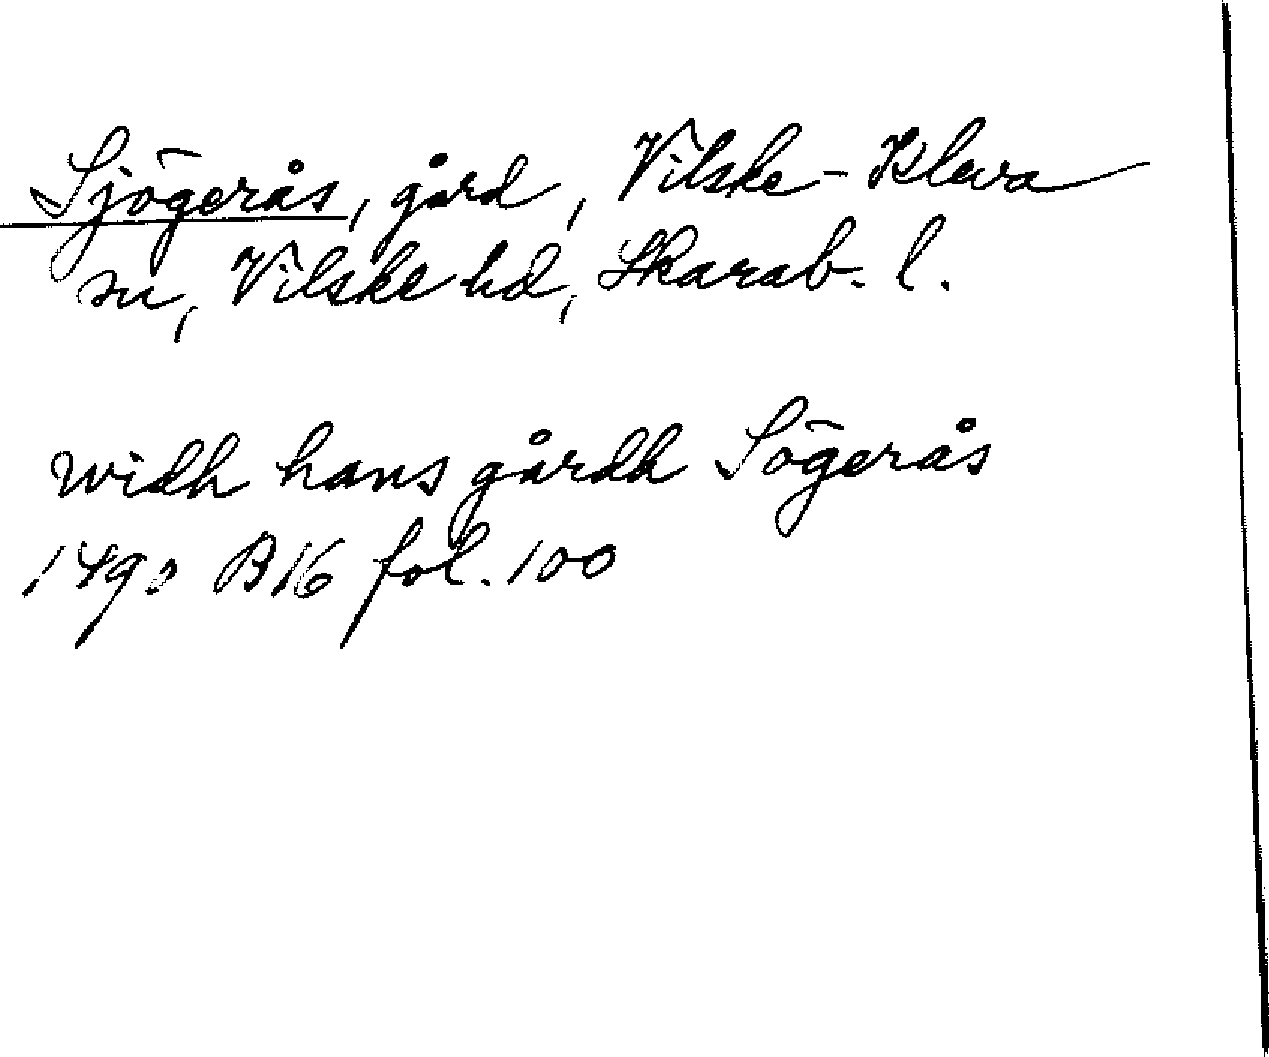 Sjögerås, gård, Vilske-Kleva
sn, Vilske hd, Skarab. l.
widh hans gårdh Sögerås
1490 B16 fol. 100